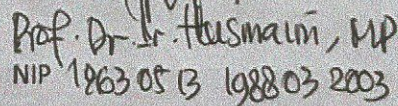 Prof. Dr. Ir. Husmaini, MP
NIP 19630513 198803 2003